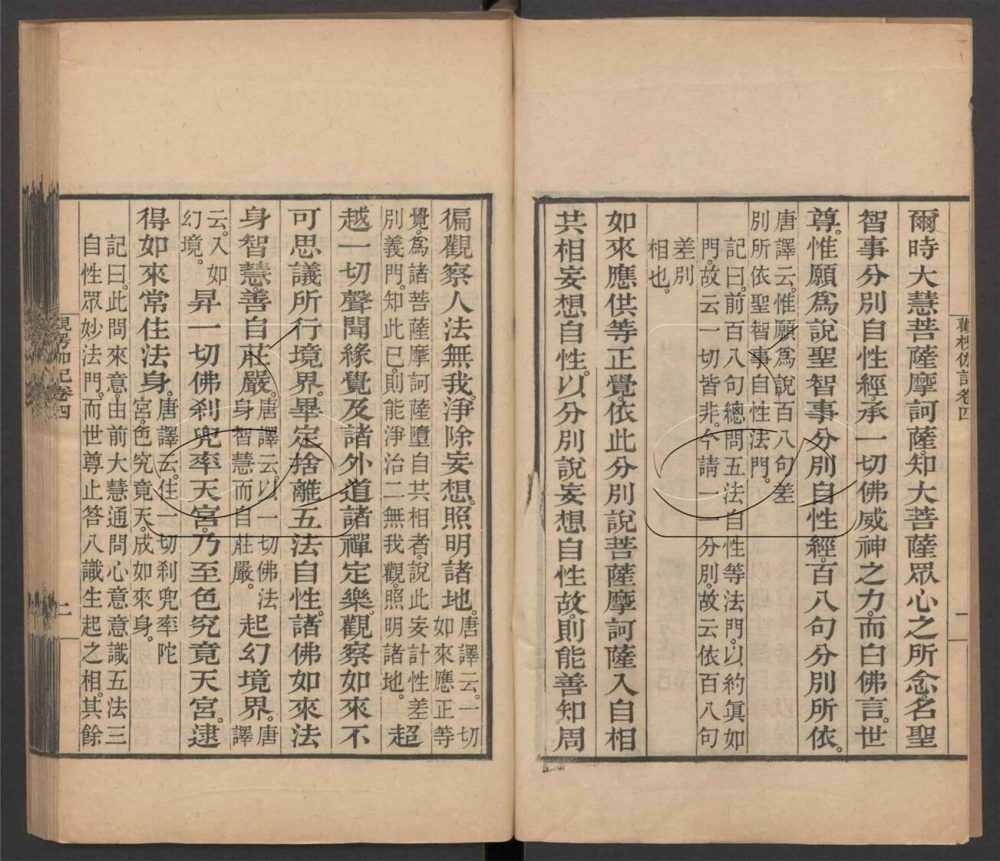 爾時大慧菩薩摩訶薩。知大菩薩眾心之所念。名聖
智事分別自性經。承一切佛威神之力。而白佛言。世
尊。惟願爲說聖智事分別自性經。百八句分別所依。
唐譯云。惟願爲說百八句差
別所依聖智事自性法門。
記曰。前百八句總問五法自性等法門。以約眞如
門。故云一切皆非。今請一一分別。故云依百八句
差別
相也。
如來應供等正覺。依此分別說菩薩摩訶薩入自相
共相妄想自性。以分別說妄想自性故。則能善知周
卷四
一
徧觀察人法無我。淨除妄想。照明諸地。
唐譯云。一切
如來應正等
覺。爲諸菩薩摩訶薩墮自共相者。說此妄計性差
別義門。知此已。則能淨治二無我觀。照明諸地。
超
越一切聲聞緣覺及諸外道諸禪定樂。觀察如來不
可思議所行境界。畢定捨離五法自性。諸佛如來法
身智慧。善自莊嚴。
唐譯云。以一切佛法
身智慧而自莊嚴。
起幻境界。
唐譯
云。入如
幻境。
昇一切佛刹兜率天宮。乃至色究竟天宮。逮
得如來常住法身。
唐譯云。住一切刹兜率陀
宮。色究竟天。成如來身。
記曰。此問來意。由前大慧通問心意意識五法三
自性眾妙法門。而世尊止答八識生起之相。其餘
觀楞伽記卷四
二